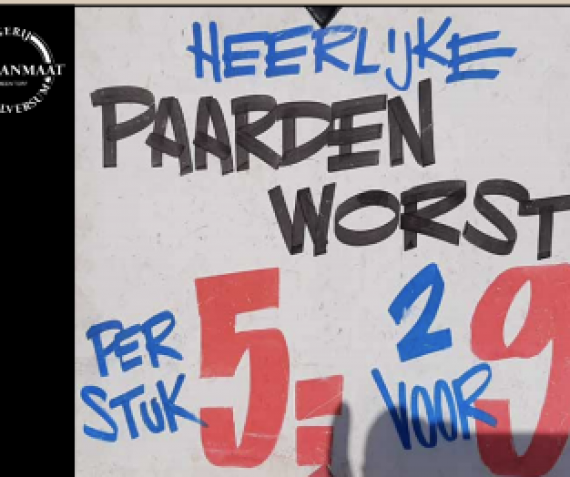 GERIJ
ANMAAT
LVERSUM
HEERLIJKE
PAARDEN
WORST
PER
STUK 5,=
2
VOOR 9